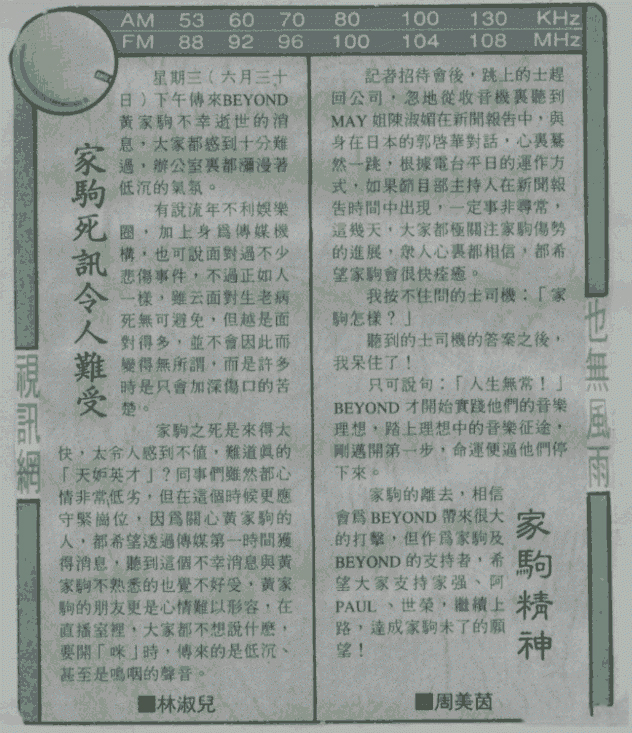 AM 53 60 70 80 100 130 KHz
FM 88 92 96 100 104 108 MHz
視訊網
家駒死訊令人難受
星期三（六月三十
日）下午傳來BEYOND
黃家駒不幸逝世的消
息，大家都感到十分難
過，辦公室裏都瀰漫著
低沉的氣氛。
有說流年不利娛樂
圈，加上身爲傳媒機
構，也可說面對過不少
悲傷事件，不過正如人
一樣，雖云面對生老病
死無可避免，但越是面
對得多，並不會因此而
變得無所謂，而是許多
時是只會加深傷口的苦
楚。
家駒之死是來得太
快，太令人感到不值，難道眞的
「天妒英才」？同事們雖然都心
情非常低劣，但在這個時候更應
守緊崗位，因爲關心黃家駒的
人，都希望透過傳媒第一時間獲
得消息，聽到這個不幸消息與黃
家駒不熟悉的也覺不好受，黃家
駒的朋友更是心情難以形容，在
直播室裡，大家都不想說什麽，
要開「咪」時，傳來的是低沉、
甚至是嗚咽的聲音。
■林淑兒
也無風雨
記者招待會後，跳上的士趕
回公司，忽地從收音機裏聽到
MAY 姐陳淑媚在新聞報告中，與
身在日本的郭啓華對話，心裏驀
然一跳，根據電台平日的運作方
式，如果節目部主持人在新聞報
告時間中出現，一定事非尋常，
這幾天，大家都極關注家駒傷勢
的進展，衆人心裏都相信，都希
望家駒會很快痊癒。
我按不住問的士司機：「家
駒怎樣？」
聽到的士司機的答案之後，
我呆住了！
只可說句：「人生無常！」
BEYOND 才開始實踐他們的音樂
理想，踏上理想中的音樂征途，
剛邁開第一步，命運便逼他們停
下來。
家駒精神
家駒的離去，相信
會爲 BEYOND 帶來很大
的打擊，但作爲家駒及
BEYOND 的支持者，希
望大家支持家强、阿
PAUL、世榮，繼續上
路，達成家駒未了的願
望！
■周美茵